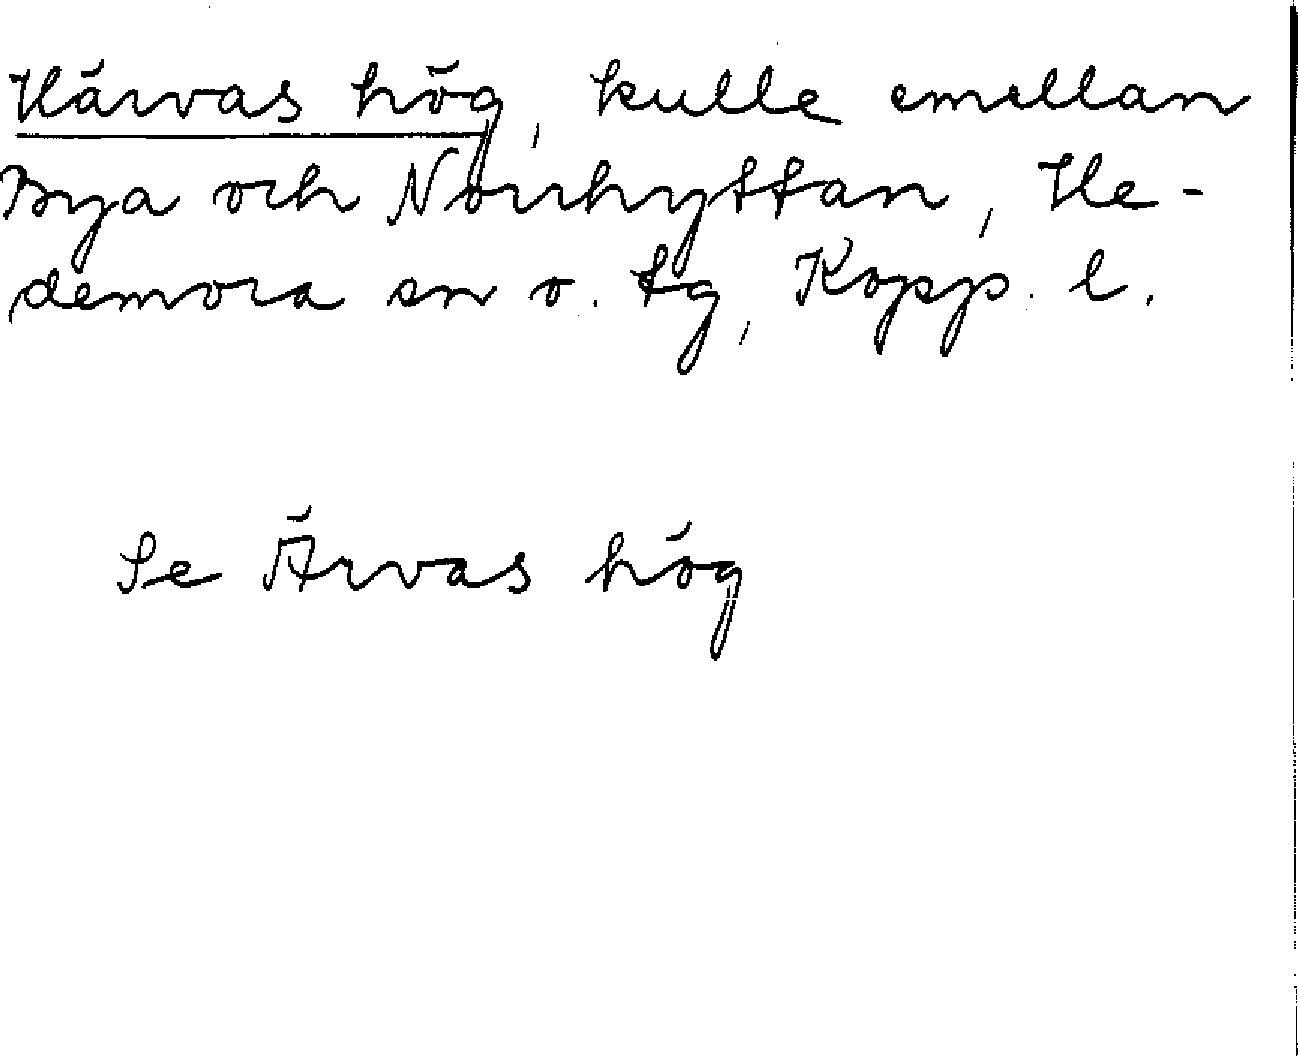 Härvas hög, kulle emellan
Bya och Norrhyttan, He-
demora sn o. tg, Kopp. l.
Se Ärvas hög